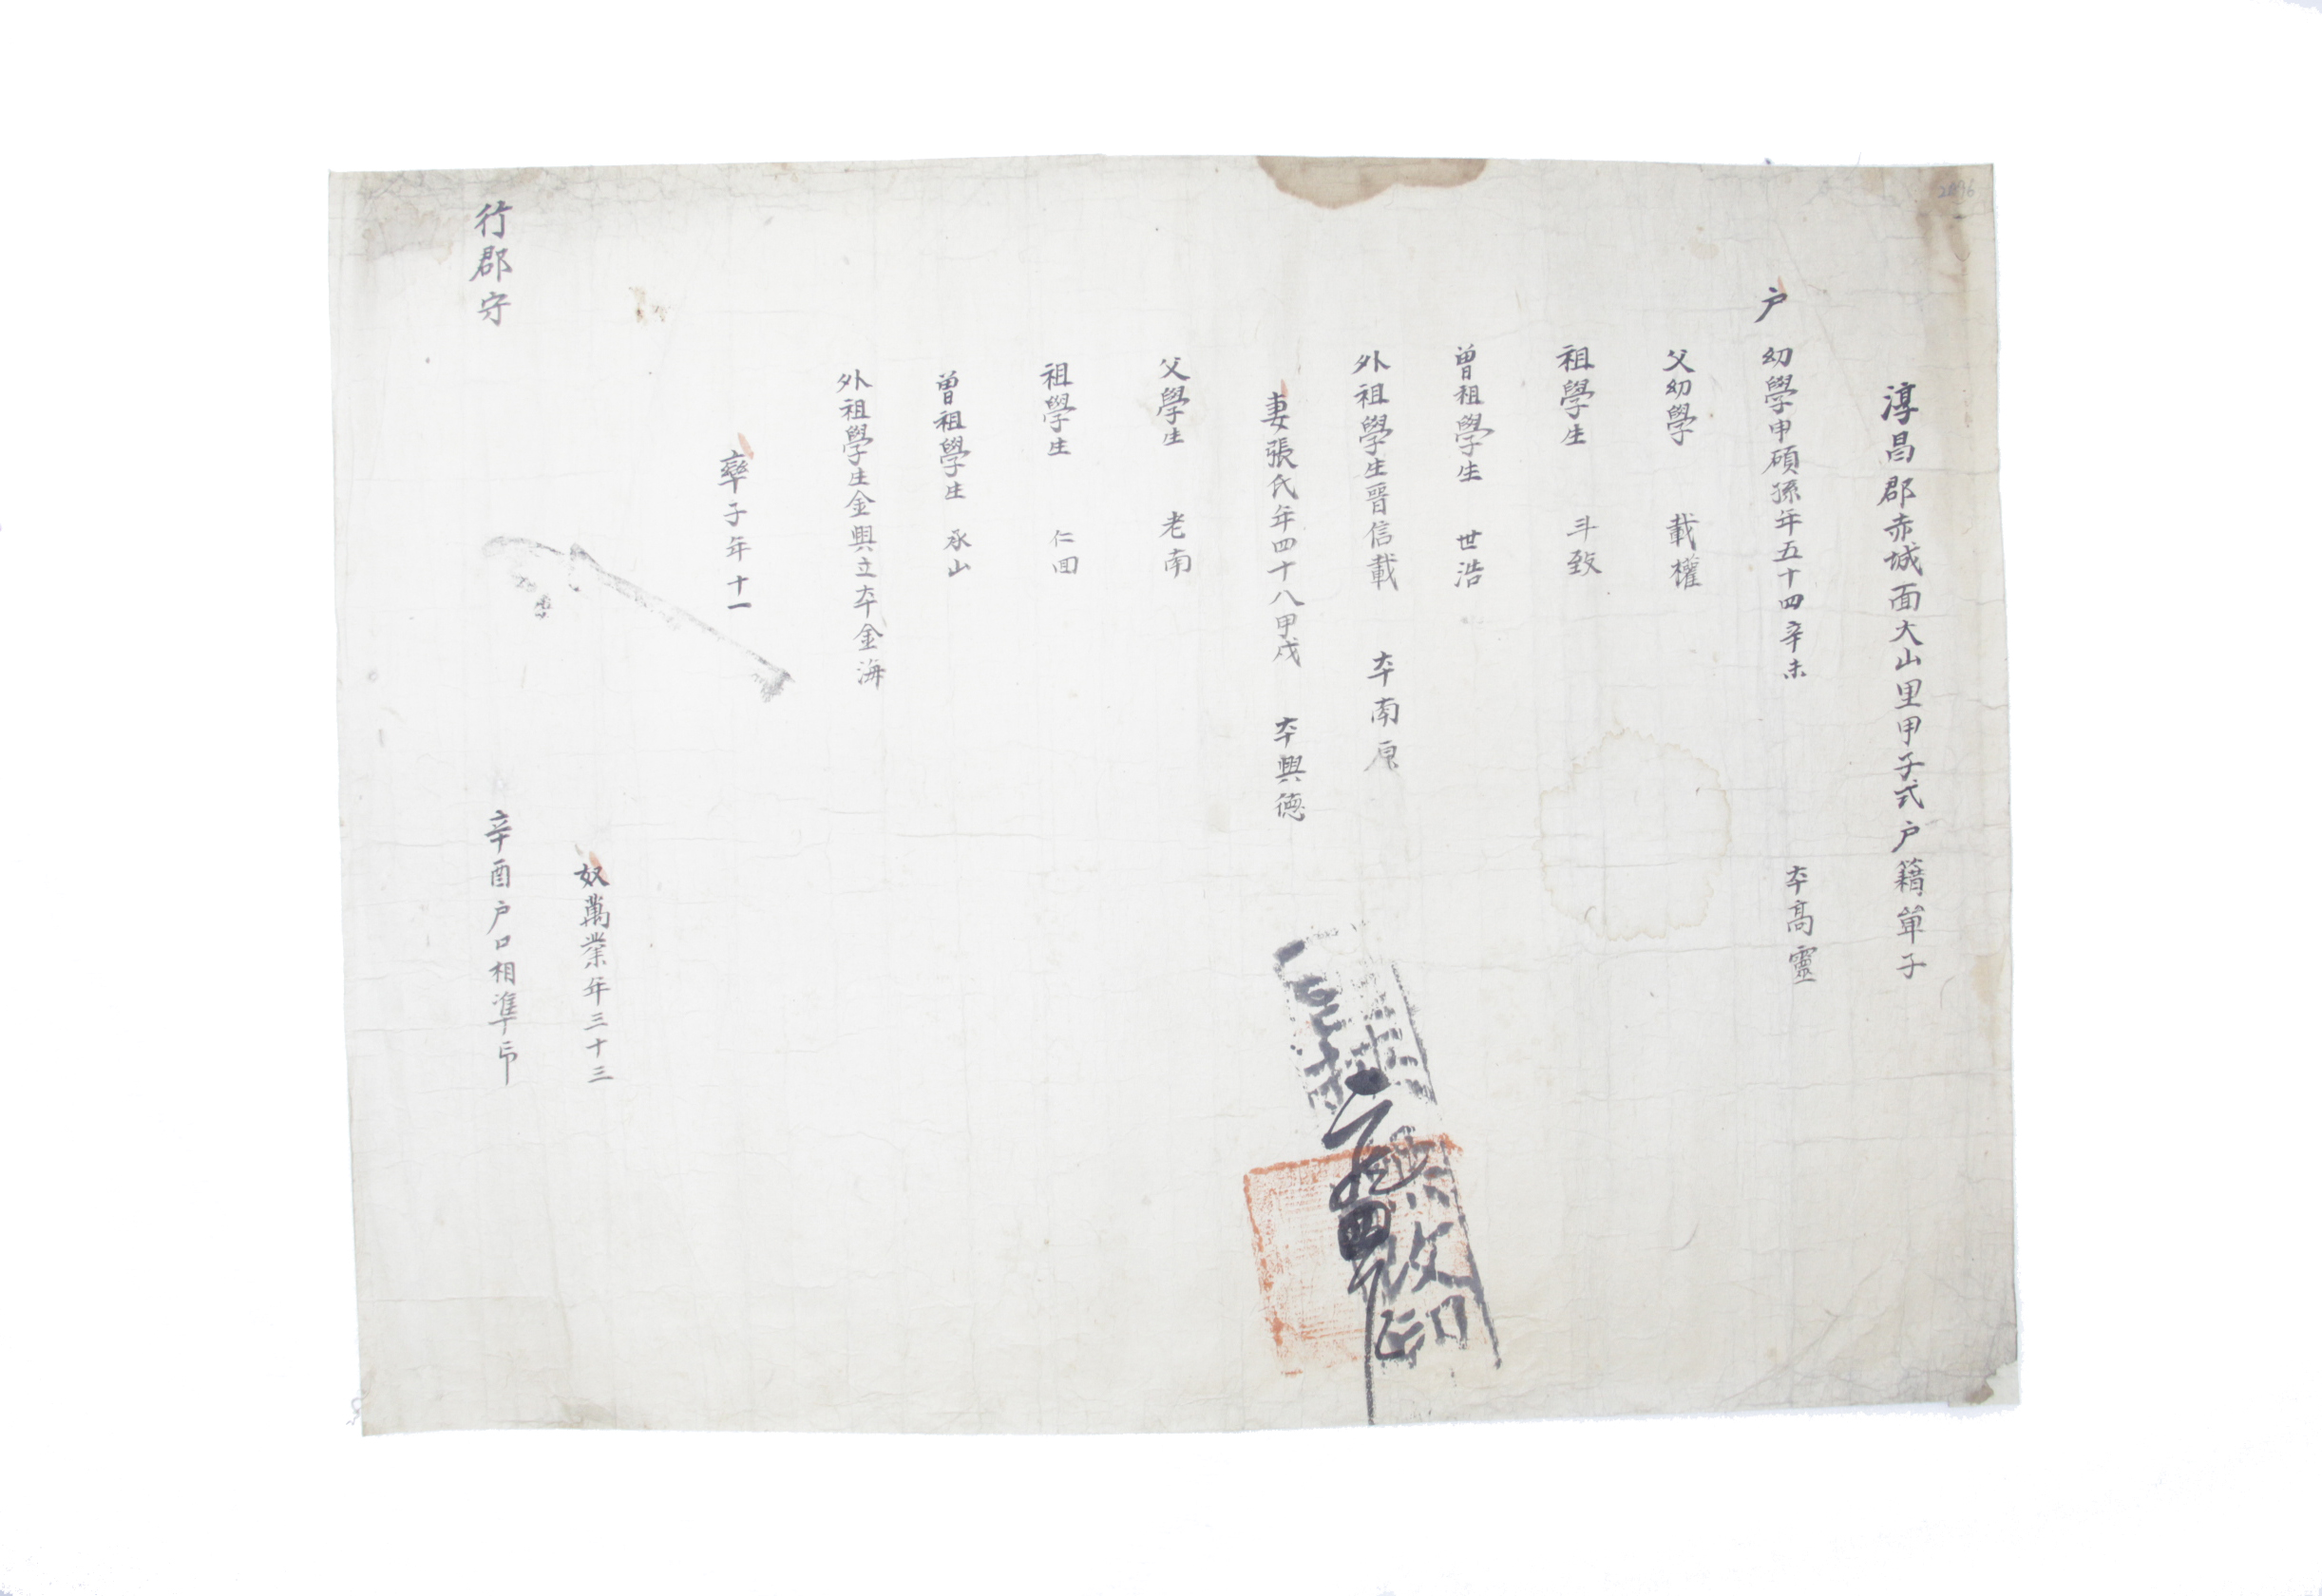 淳昌郡赤城面大山里甲子式户籍單子
户 幼學申碩孫年五十四辛未 本高靈
父幼學 載權
祖學生 斗致
曾祖學生 世浩
外祖學生晉信載 本南原
妻張氏年四十八甲戌 本興德
父學生 老南
祖學生 仁回
曾祖學生 承山
外祖學生金興立本金海
率子年十一
奴萬業年三十三
辛酉户口相準印
行郡守
改印